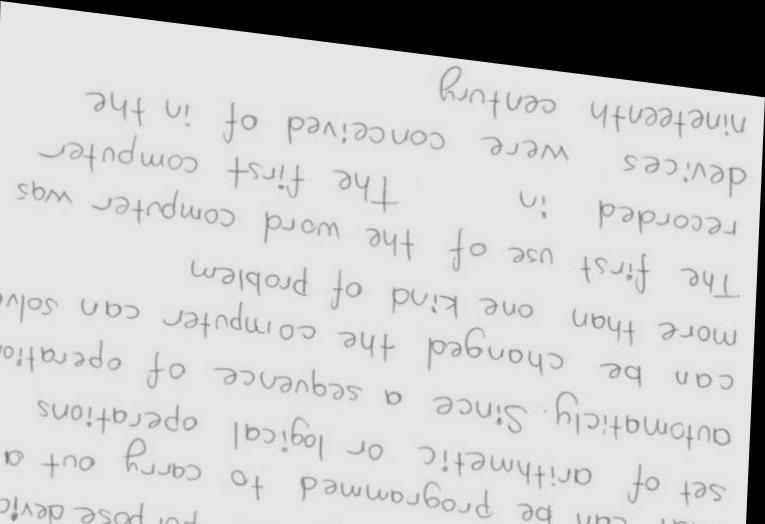 pose
can be programmed to carry out a
set of arithmetic or logical operations
automaticly. Since a sequence of
can be changed the computer can
more than one kind of problem
The first use of the word computer was
recorded in The first computer
devices were conceived of in the
nineteenth century